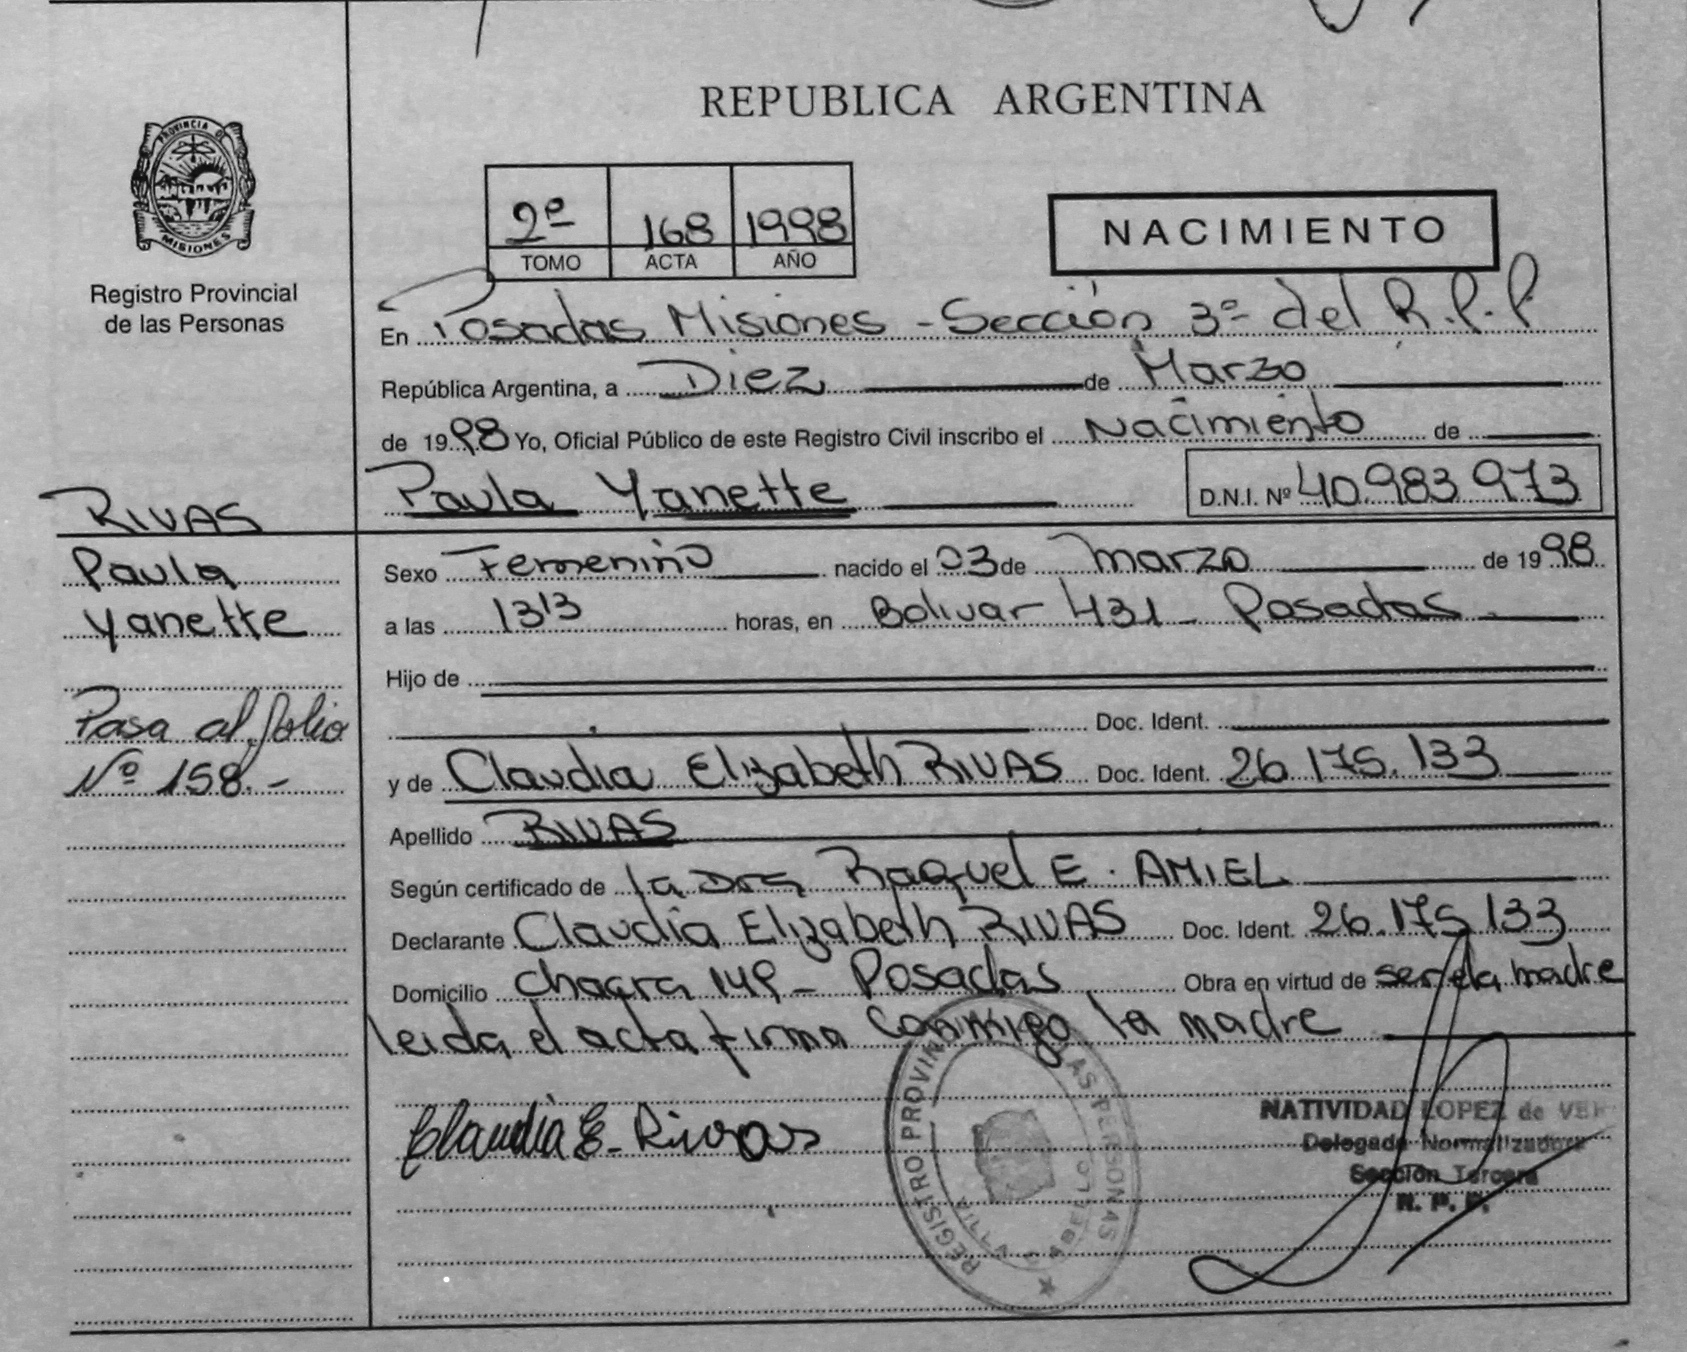 REPUBLICA ARGENTINA
PROVINCIA DE
MISIONES
Registro Provincial
de las Personas
2º 168 1998
TOMO ACTA AÑO
NACIMIENTO
En Posadas Misiones - Sección 3º del R.P.P
República Argentina, a Diez de Marzo
de 1998 Yo, Oficial Público de este Registro Civil inscribo el Nacimiento de
Paula Yanette D.N.I. Nº 40.983.973
RIVAS
Paula
Yanette
Pasa al folio
Nº 158.-
Sexo Femenino nacido el 03 de marzo de 1998
a las 13¹³ horas, en Bolivar 431 - Posadas -
Hijo de
Doc. Ident.
y de Claudia Elizabeth RIVAS Doc. Ident. 26.175.133
Apellido RIVAS
Según certificado de la Dra Raquel E. AMIEL
Declarante Claudia Elizabeth RIVAS Doc. Ident. 26.175.133
Domicilio chacra 149 - Posadas Obra en virtud de ser la madre
leida el acta firma conmigo la madre
Claudia E. Rivas
REGISTRO PROVINCIAL LAS PERSONAS
VILLA CABELLO
NATIVIDAD LOPEZ de
Delegada Normalizadora
Sección Tercera
R. P. P.